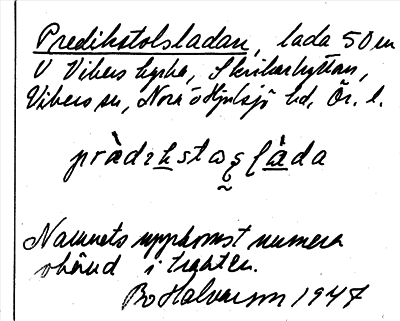 Predikstolsladan, lada 50 m
V Vikers kyrka, Skrikarhyttan,
Vikers sn, Nora o Hjulsjö hd, Ör. l.
pràdıkstaşlàda
Namnets uppkomst numera
okänd i trakten.
Bo Halvarson 1947